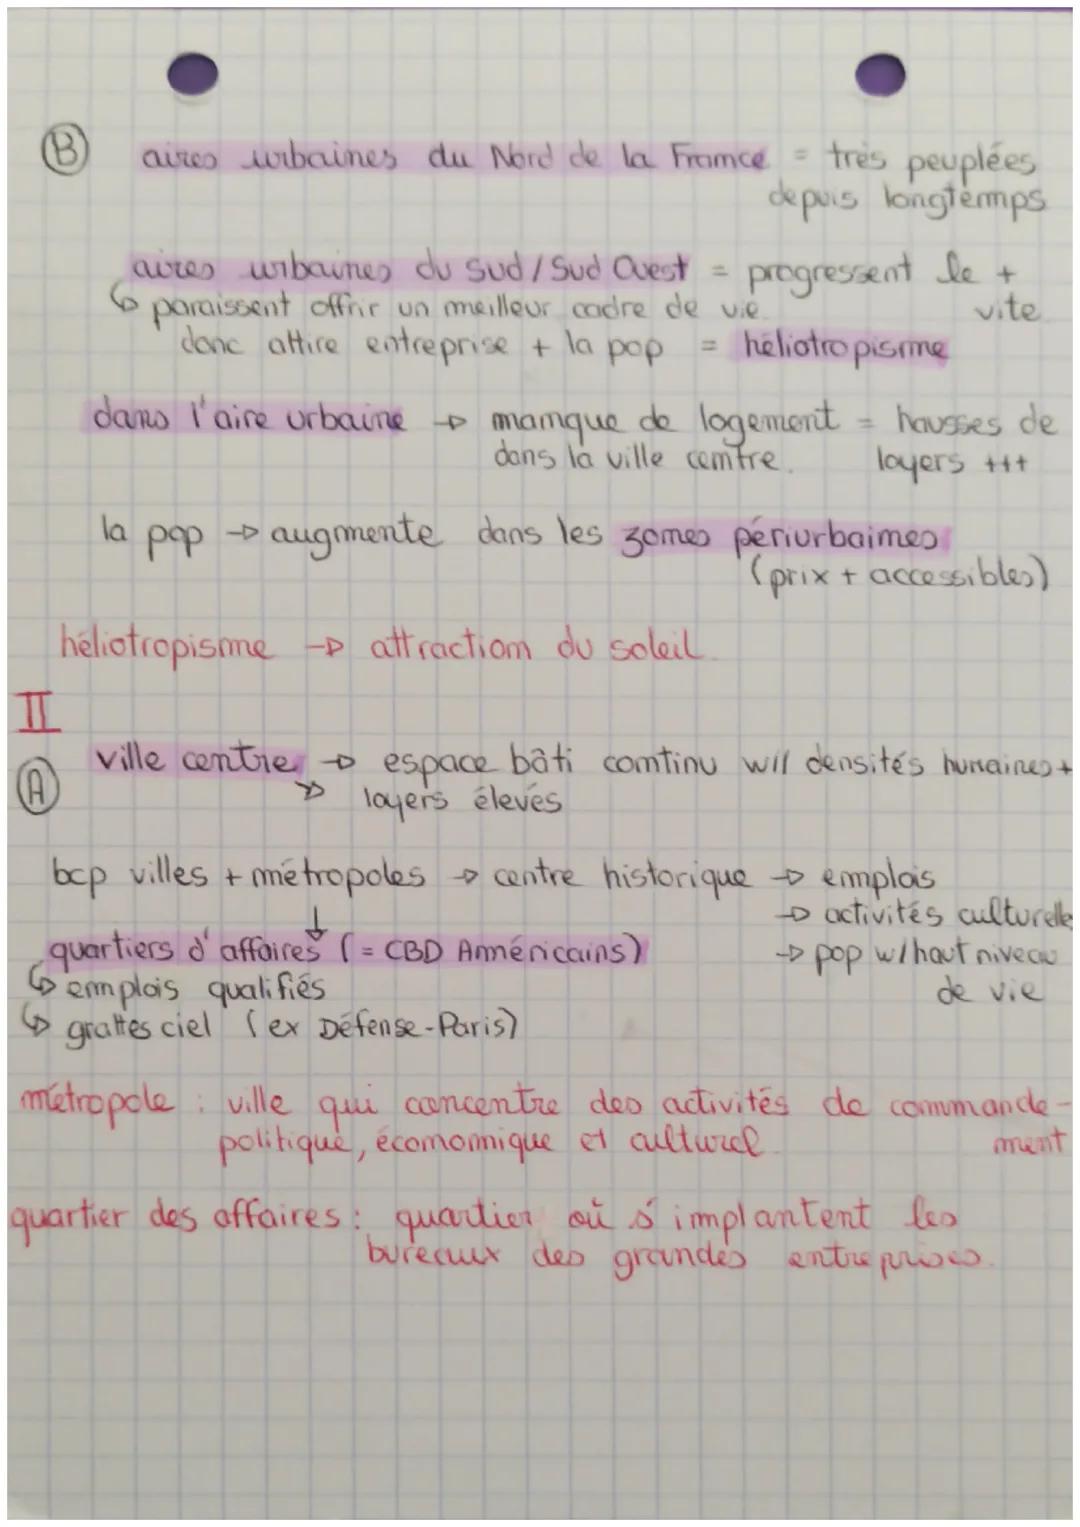 B aires urbaines du Nord de la France = très peuplées
depuis longtemps
aires urbaines du Sud / Sud Ouest = progressent le +
vite
↳ paraissent offrir un meilleur cadre de vie
donc attire entreprise + la pop = héliotropisme
dans l'aire urbaine → manque de logement = hausses de
dans la ville centre. loyers +++
la pop → augmente dans les zones périurbaines
(prix + accessibles)
héliotropisme → attraction du soleil.
II
A ville centre → espace bâti continu w/ densités humaines +
→ loyers élevés
bcp villes + métropoles → centre historique → emplois
→ activités culturelles
↓
quartiers d'affaires (= CBD Américains) → pop w/ haut niveau
de vie
↳ emplois qualifiés
↳ grattes ciel (ex Défense-Paris)
métropole : ville qui concentre des activités de commande-
ment
politique, économique et culturel.
quartier des affaires : quartier où s'implantent les
bureaux des grandes entreprises.